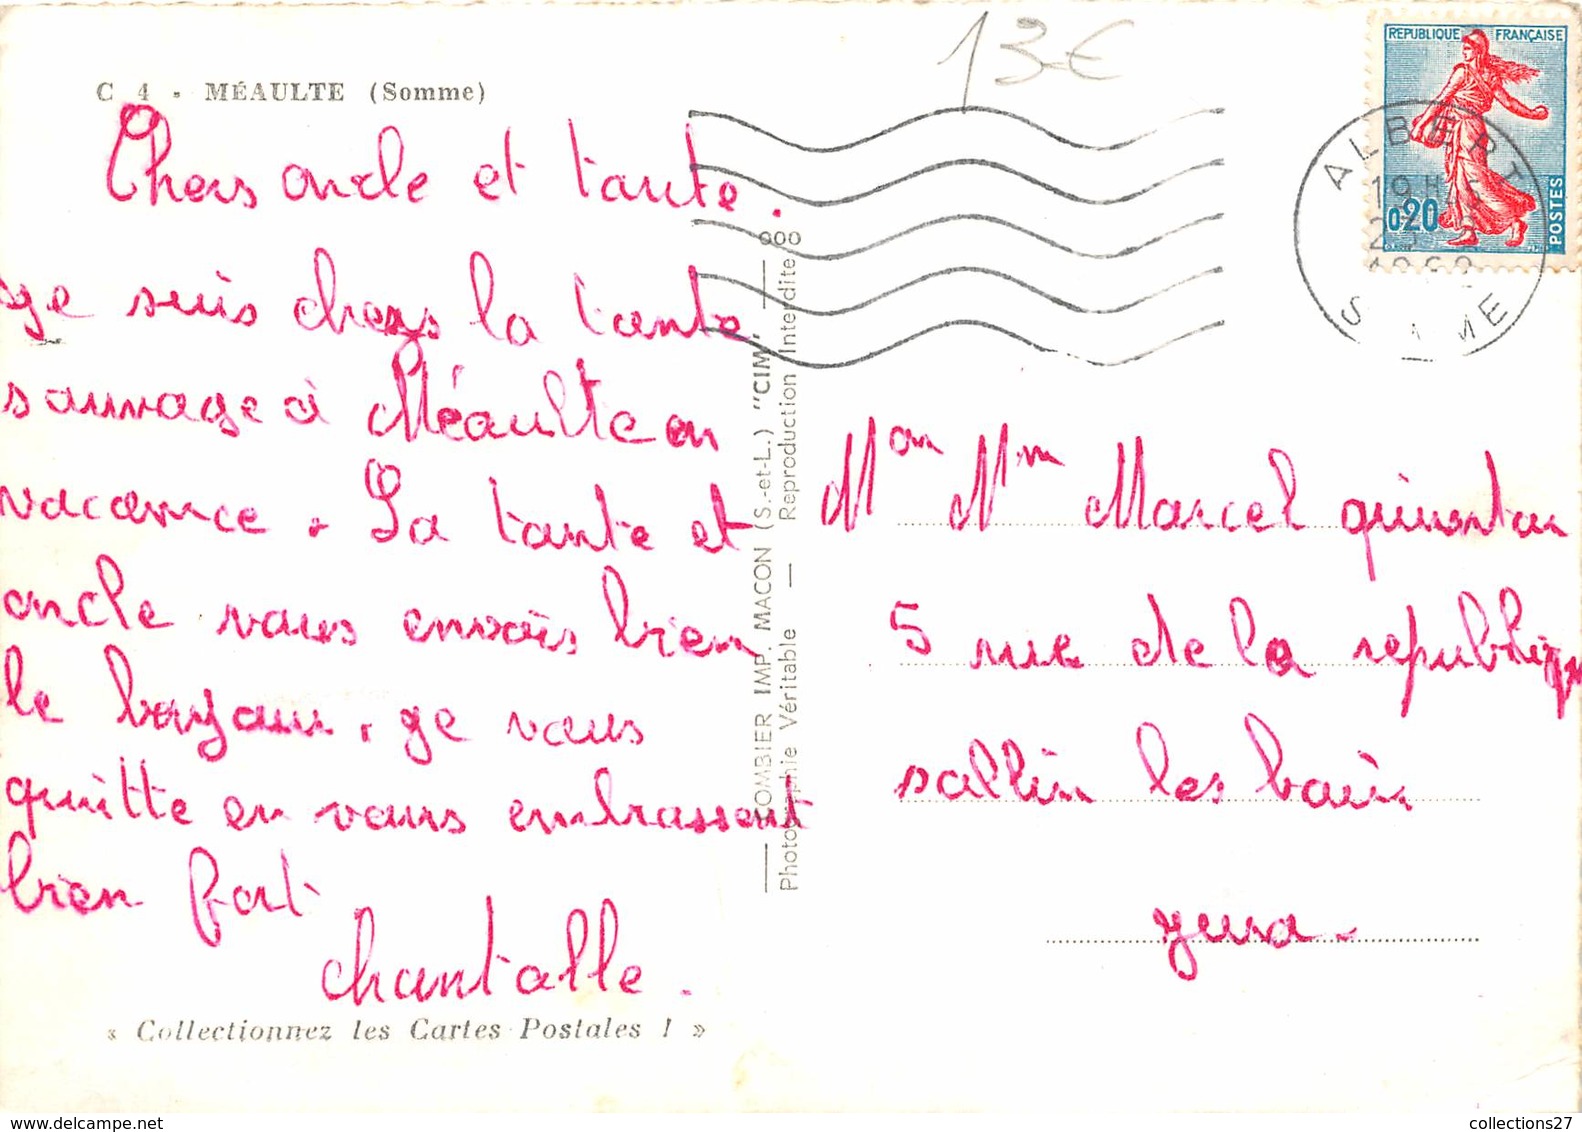 C 4 - MÉAULTE (Somme)
13€
Chers oncle et tante.
ge suis chers la tante
sauvage à Méaulte en
vacance. La tante et
oncle vous envois bien
le bonjour. ge vous
quitte en vous embrassent
bien fort
chantalle.
« Collectionnez les Cartes Postales ! »
COMBIER IMP. MACON (S.-et-L.) "CIM"
Photographie Véritable — Reproduction Interdite
REPUBLIQUE FRANÇAISE
0,20
POSTES
ALBERT
19H
SOMME
Mon Mm Marcel quinontan
5 rue de la republique
sallin les bain
gura
collections27